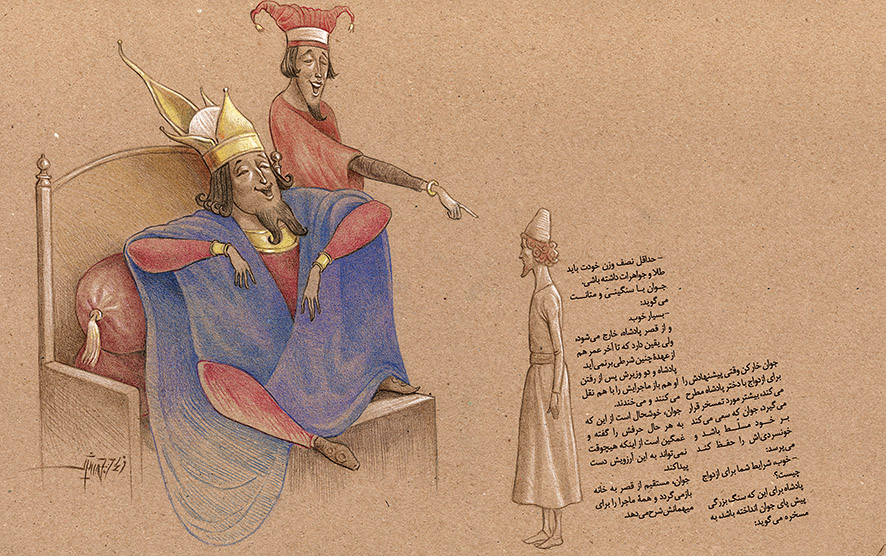 جوان خارکن وقتی پیشنهادش را
برای ازدواج با دختر پادشاه مطرح
می‌کند، بیشتر مورد تمسخر قرار
می‌گیرد. جوان که سعی می‌کند
بر خود مسلط باشد و
خونسردی‌اش را حفظ کند
می‌پرسد:
- خوب، شرایط شما برای ازدواج
چیست؟
پادشاه برای این که سنگ بزرگی
پیش پای جوان انداخته باشد، به
مسخره می‌گوید:
- حداقل نصف وزن خودت باید
طلا و جواهرات داشته باشی.
جوان با سنگینی و متانت
می‌گوید:
- بسیار خوب.
و از قصر پادشاه، خارج می‌شود،
ولی یقین دارد که تا آخر عمر هم
از عهدۀ چنین شرطی برنمی‌آید.
پادشاه و دو وزیرش پس از رفتن
او هم باز ماجرایش را با هم نقل
می‌کنند و می‌خندند.
جوان، خوشحال است از این که
به هر حال حرفش را گفته و
غمگین است از اینکه هیچوقت
نمی‌تواند به این آرزویش دست
پیدا کند.
جوان، مستقیم از قصر به خانه
بازمی‌گردد و همۀ ماجرا را برای
میهمانش شرح می‌دهد.